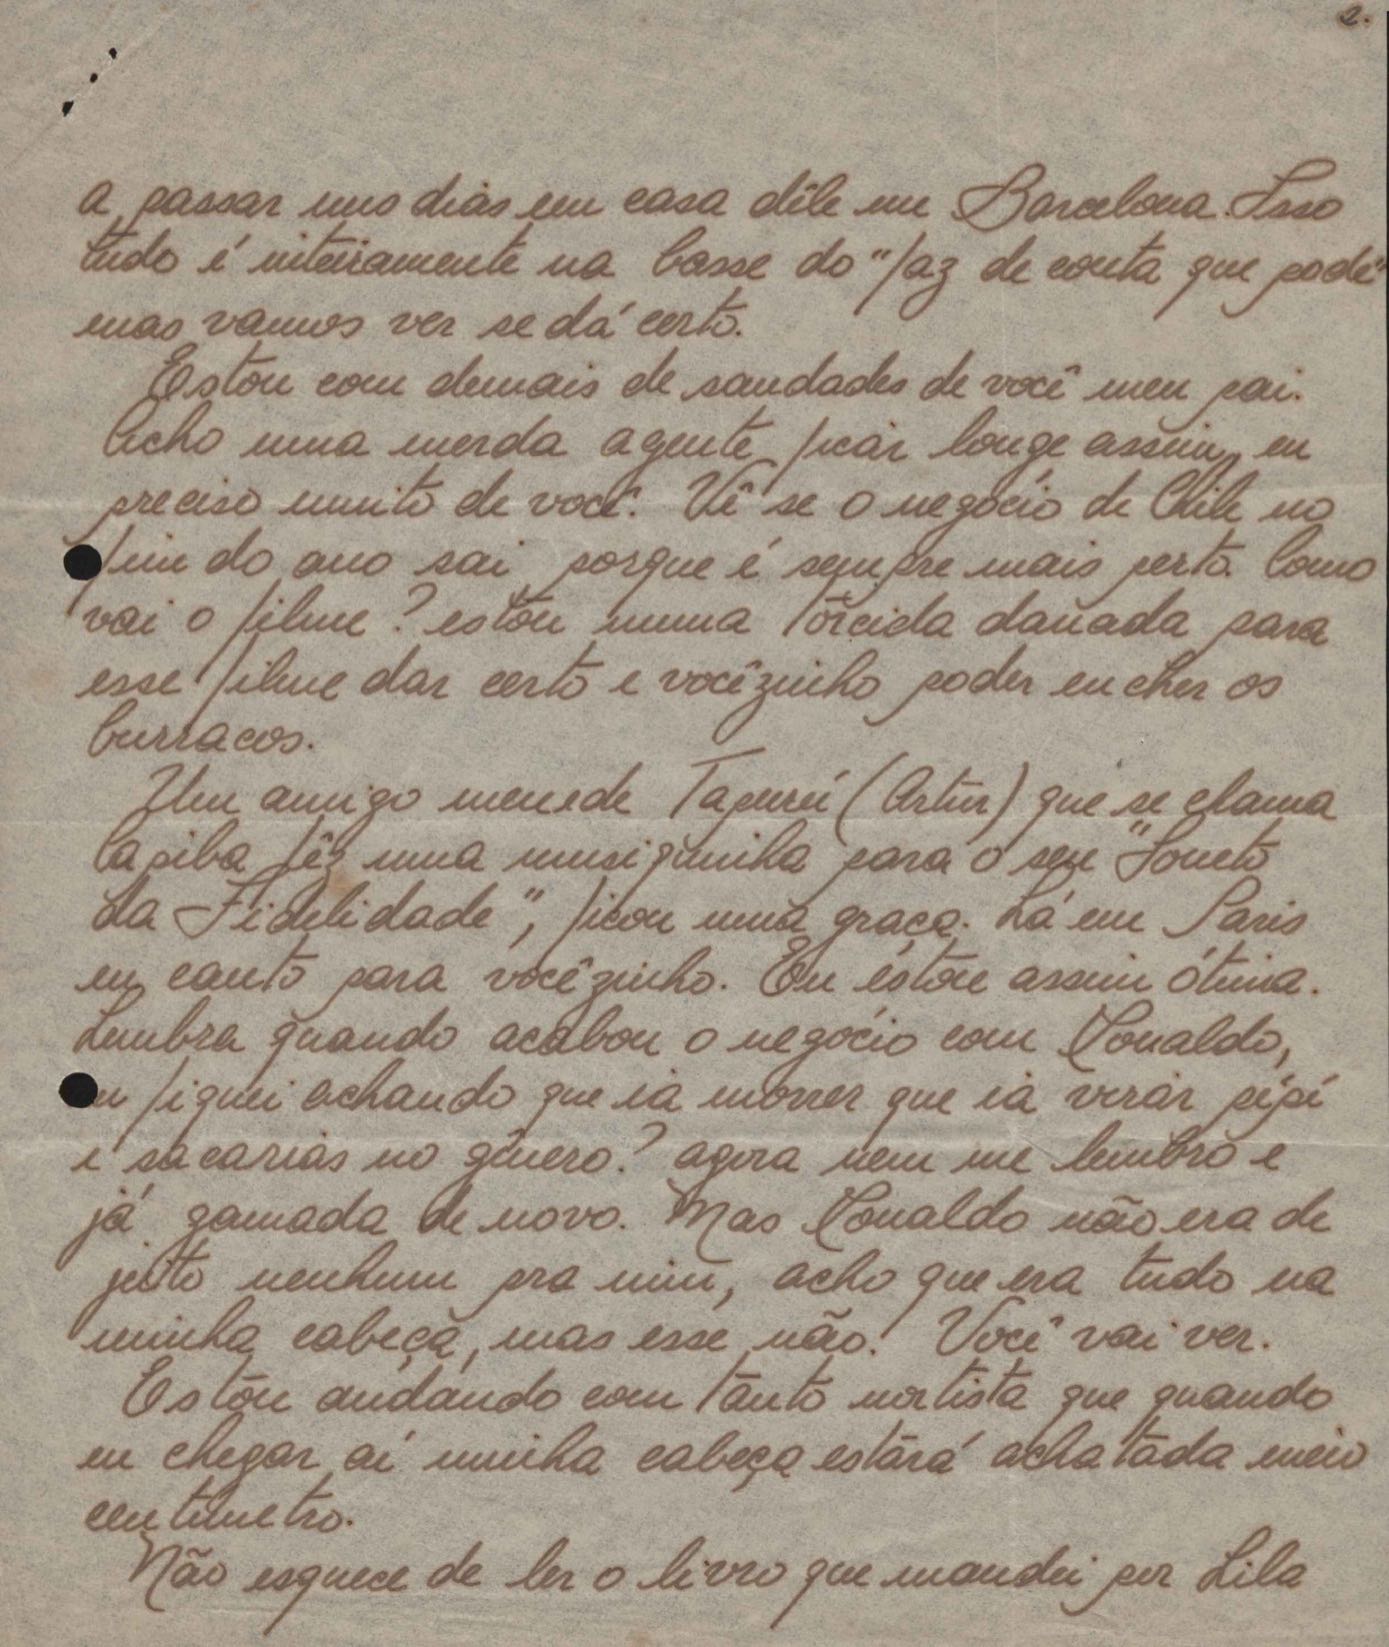 2.
a passar uns dias em casa dêle em Barcelona. Isso
tudo é inteiramente na basse do "faz de conta que pode"
mas vamos ver se dá certo.
Estou com demais de saudades de você meu pai.
Acho uma merda agente ficar longe assim, eu
preciso muito de você. Vê se o negócio de Chile no
fim do ano sai, porque é sempre mais perto. Como
vai o filme? estou numa torcida danada para
esse filme dar certo e vocêzinho poder encher os
burracos.
Um amigo meu e de Taperuí (Artur) que se chama
Capiba fêz uma musiquinha para o seu "Soneto
da Fidelidade", ficou uma graça. Lá em Paris
eu canto para vocêzinho. Eu estou assim ótima.
Lembra quando acabou o negócio com Ronaldo,
eu fiquei achando que ia morrer que ia virar pípi
e sacarias no gênero? agora nem me lembro e
já gamada de novo. Mas Ronaldo não era de
jeito nenhum pra mim, acho que era tudo na
minha cabeça, mas esse não! Você vai ver.
Estou andando com tanto nortista que quando
eu chegar aí minha cabeça estará achatada meio
centimetro.
Não esquece de ler o livro que mandei por Lila